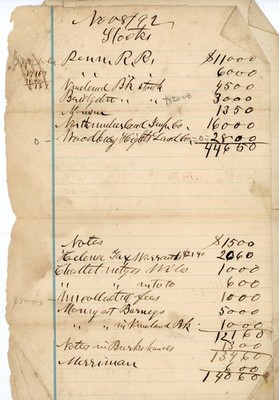 Nov 8/92
Stocks
Penn. R.R. $11000
" " 6000
Vineland Bk Stock 4500
Bridgeton " " 3000
1350
Northumberland Imp. Co. 16000
Woodbury Hights Land Co. -0- 2800
44650
Notes $1500
Helena Tax Warrants $2140 2060
Chattel mtges 1000
" " 600
Uncollected fees 1000
Money at Barneys 5000
" " in Vineland Bk 1000
12160
Notes in Burks hands 1300
13460
Merriman 600
14060